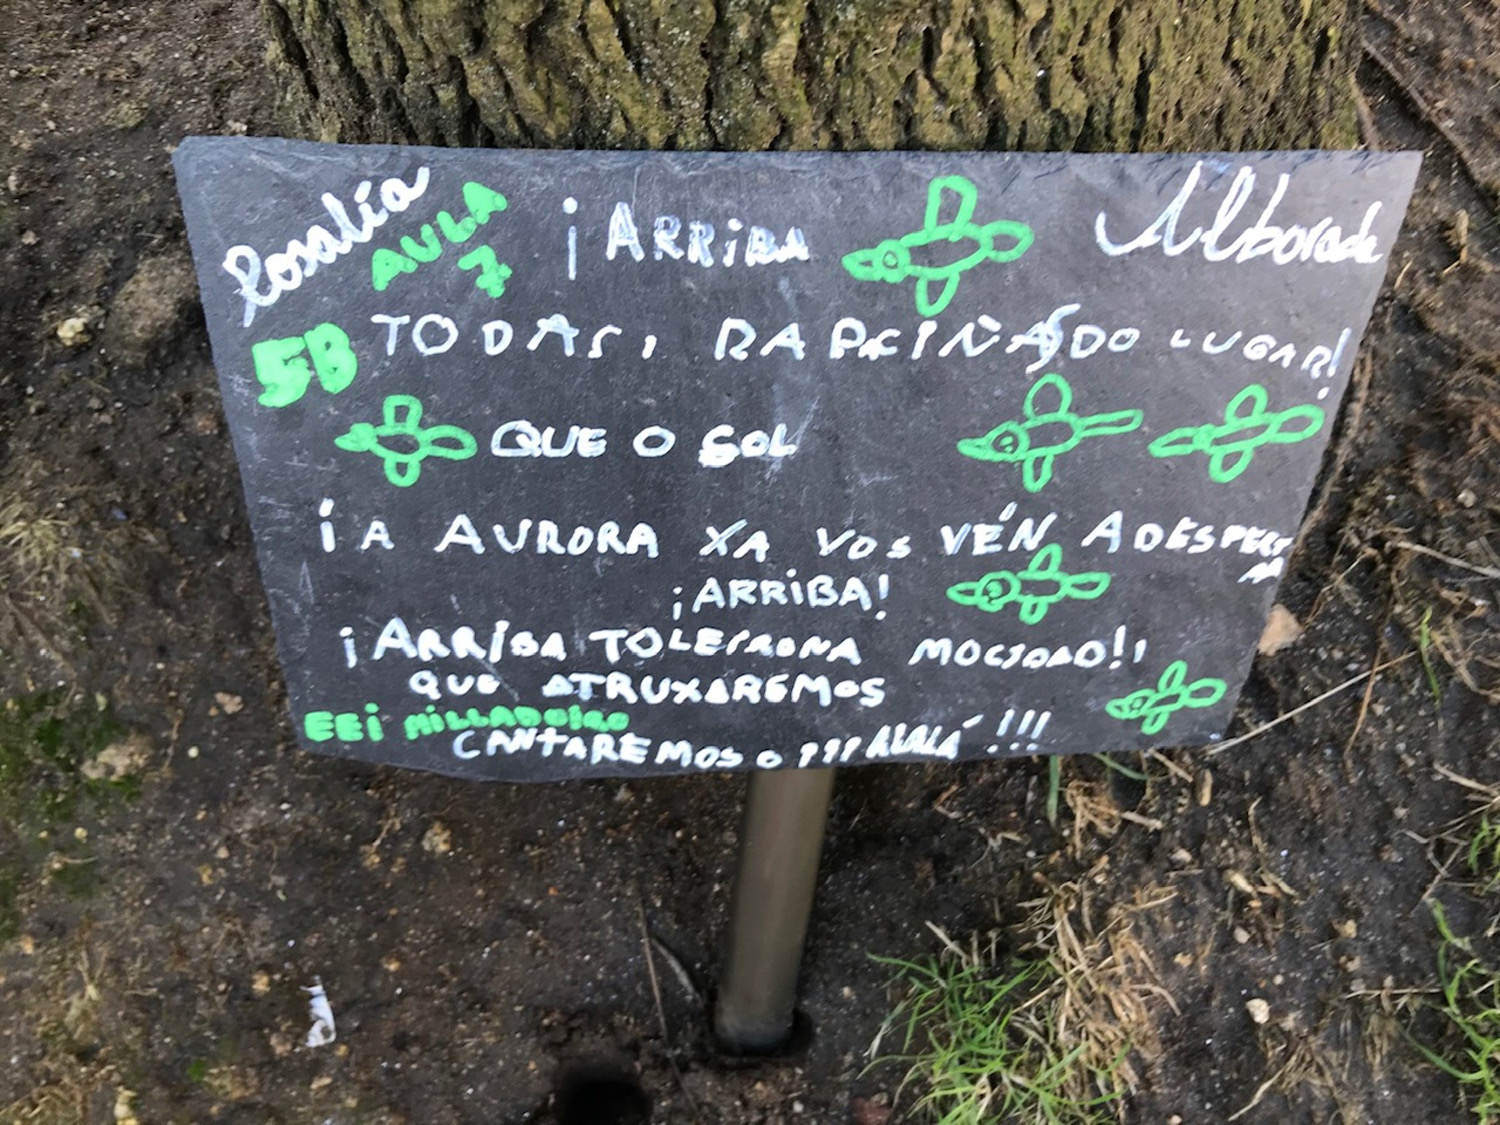 Rosalía
AULA
7
¡ARRIBA
Alborada
5B
TODAS, RAPCIÑAS DO LUGAR!
QUE O SOL
¡A AURORA XA VOS VÉN A DESPERT
AR
¡ARRIBA!
¡ARRIBA TOLEIRONA MOCIDAD!,
QUE ATRUXAREMOS
EEI MILLADOIRO
CANTAREMOS O ¡¡¡ALALÁ!!!